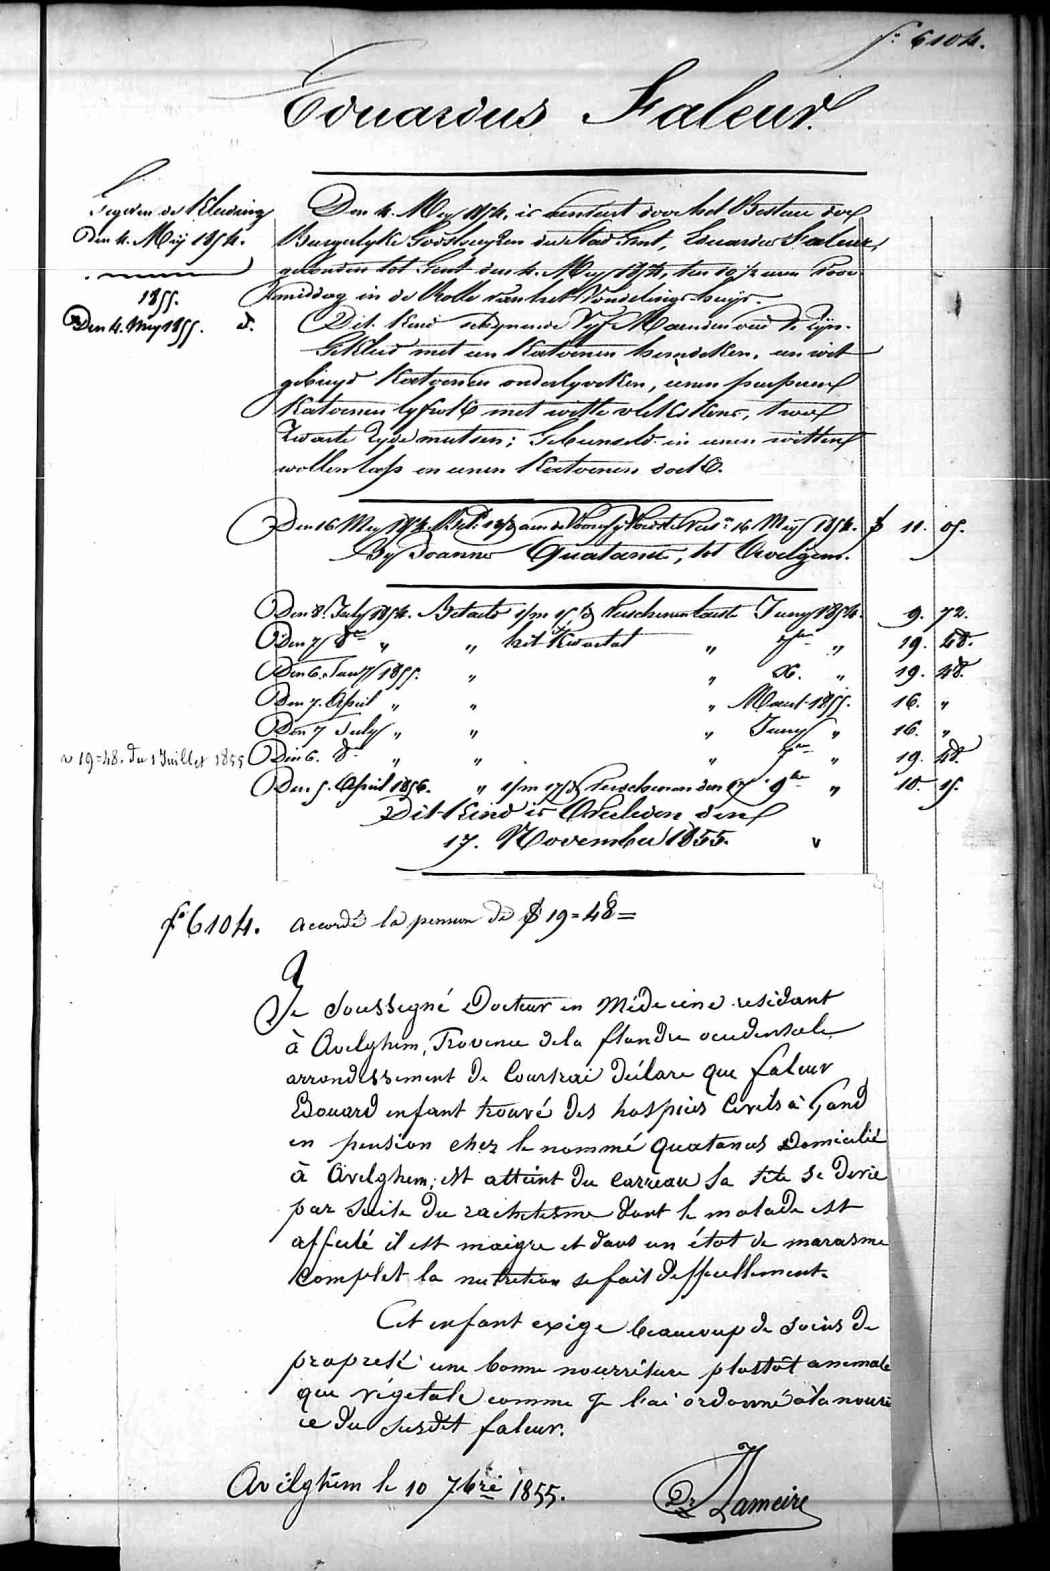 f° 6104.
Eduardus Faleur.
Gegeven de Kleeding
Den 4. Mey 1854.
1855.
Den 4. Mey 1855. d°.
Den 4. Mey 1854. is aenveert door het Bestuer der
Burgerlyke Godshuyzen der stad Gent, Eduardus Faleur,
gevonden tot Gent den 4. Mey 1854, ten 10 1/2 uren voor
middag in de Rolle van het Vondelingshuys.
Dit Kind schynende Vyf Maenden oud te zyn.
Gekleed met een Katoenen hemdeken, een wit
gebreyd Katoenen onderlyveken, eenen purpuren
Katoenen lyfrok met witte vlekskens, twee
Zwarte Zyde mutsen; Gebunseld in eenen witten
wollen lap en eenen Katoenen doek.
Den 16 Mey 1854 16 Mey 1854. 11. 05.
By Joannes Quatanne, tot Avelgem.
Den 8. July 1854. Betaeld i/m 15/ Verschenen laeste Juny 1854. 9. 72.
Den 7/ 8re " " het Kwartael " 7ber " 19. 48.
Den 6. Jany 1855. " " X. " 19. 48.
Den 7. April " " " Maart 1855. 16. "
Den 7 July " " " Juny " 16. "
v 19=48. du 1 Juillet 1855 Den 6. 8re " " " 7ber " 19. 48.
Den 5. April 1856. " i/m 17/ Verschenen den 17 9bre " 10. 15.
Dit Kind is Overleden den
17. November 1855. v
f° 6104. accordé la pension de 19=48=
Je Soussegné Docteur en Médecine residant
à Avelghem, Province dela flandre occidentale
arrondissement de Courtrai déclare que faleur
Edouard enfant trouvé des hospices Civils à Gand
en pension chez le nommé Quatanus Domicilié
à Avelghem, est atteint du Carreau sa tête se devie
par suite du rachitesme dont le malade est
affecté il est maigre et dans un état de marasme
complet la nutrition se fait deffecellement.
Cet enfant exige beaucoup de soins de
propreté une bonne nourriture plustôt animale
que végetale comme je l'ai ordonné à la nouri
ce du susdit faleur.
Avelghem le 10 7bre 1855.
Dr Lameire